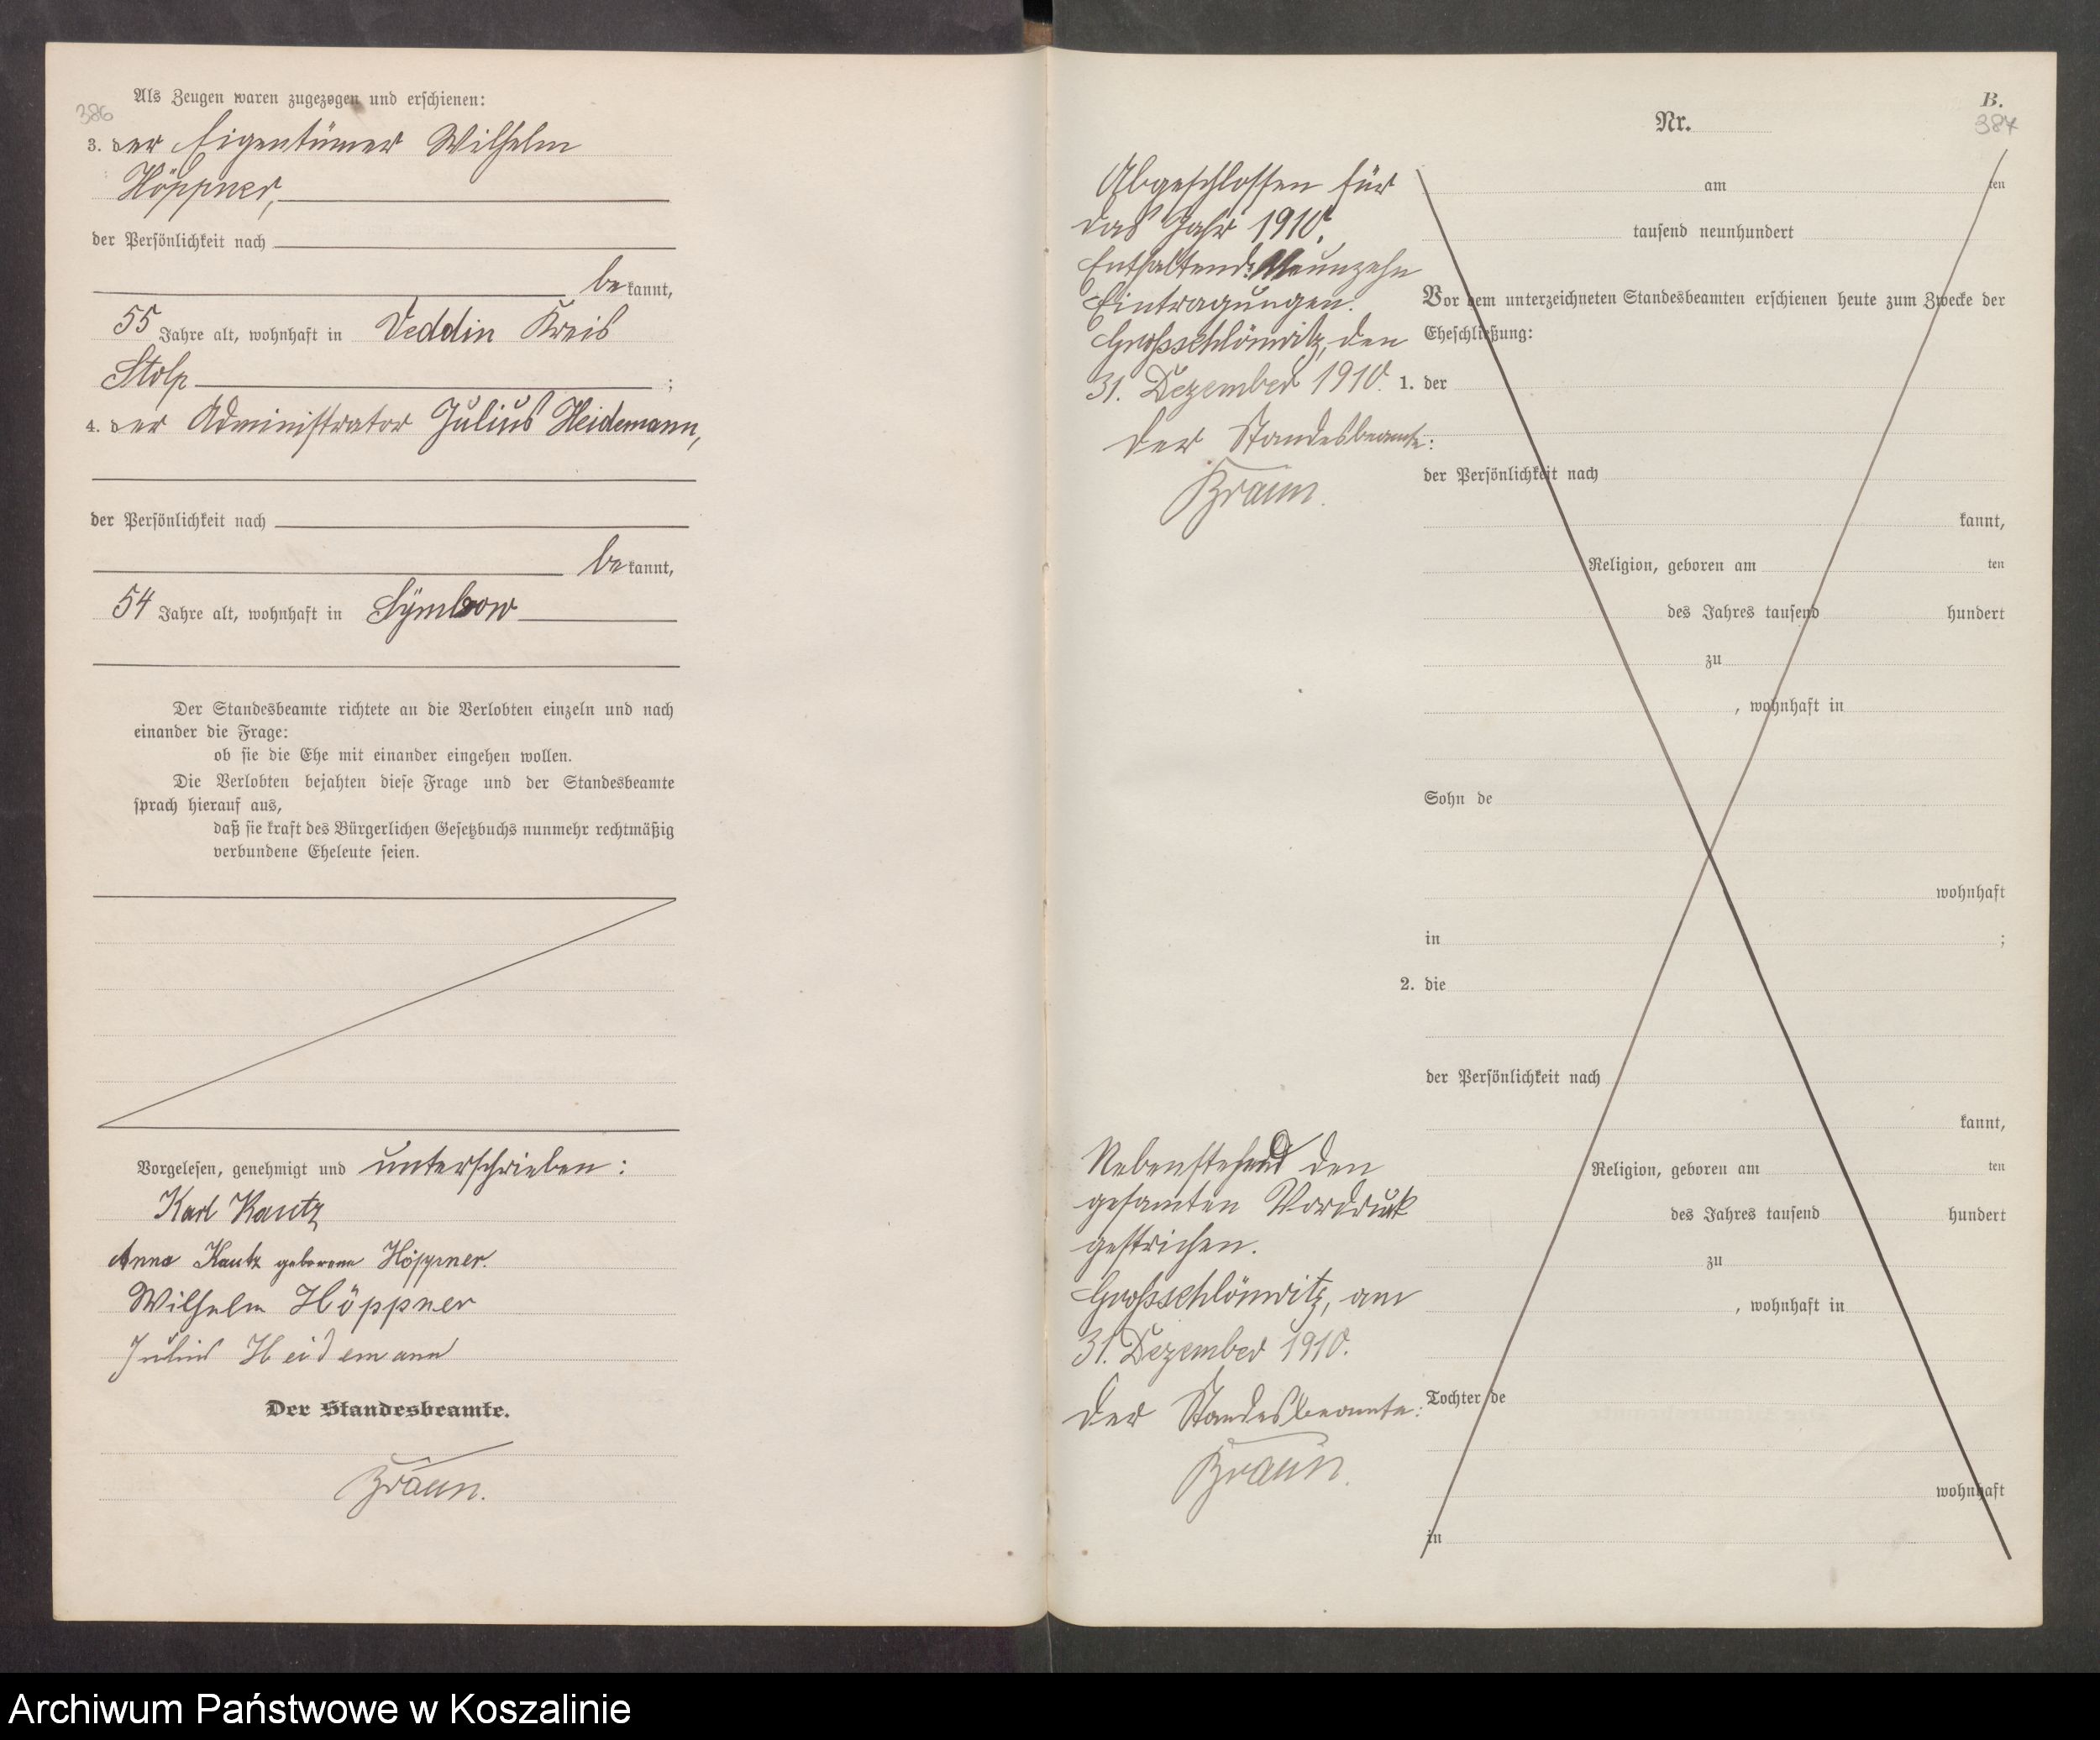 386
Als Zeugen waren zugezogen und erschienen:
3. der Eigentümer Wilhelm
Höppner,
der Persönlichkeit nach
bekannt,
55 Jahre alt, wohnhaft in Veddin Kreis
Stolp ;
4. der Administrator Julius Heidemann,
der Persönlichkeit nach
bekannt,
54 Jahre alt, wohnhaft in Symbow
Der Standesbeamte richtete an die Verlobten einzeln und nach
einander die Frage:
ob sie die Ehe mit einander eingehen wollen.
Die Verlobten bejahten diese Frage und der Standesbeamte
sprach hierauf aus,
daß sie kraft des Bürgerlichen Gesetzbuchs nunmehr rechtmäßig
verbundene Eheleute seien.
Vorgelesen, genehmigt und unterschrieben:
Karl Kautz
Anna Kautz geborene Höppner.
Wilhelm Höppner
Julius Heidemann
Der Standesbeamte.
Braun.
B.
387
Nr.
Abgeschlossen für
das Jahr 1910.
Enthaltend: Neunzehn
Eintragungen.
Grossschlönwitz, den
31. Dezember 1910.
Der Standesbeamte:
Braun.
am ten
tausend neunhundert
Vor dem unterzeichneten Standesbeamten erschienen heute zum Zwecke der
Eheschließung:
1. der
der Persönlichkeit nach
kannt,
Religion, geboren am ten
des Jahres tausend hundert
zu
, wohnhaft in
Sohn de
wohnhaft
in ;
2. die
der Persönlichkeit nach
kannt,
Religion, geboren am ten
des Jahres tausend hundert
zu
, wohnhaft in
Tochter de
wohnhaft
in
Nebenstehend den
gesamten Vordruck
gestrichen.
Grossschlönwitz, am
31. Dezember 1910.
Der Standesbeamte:
Braun.
Archiwum Państwowe w Koszalinie